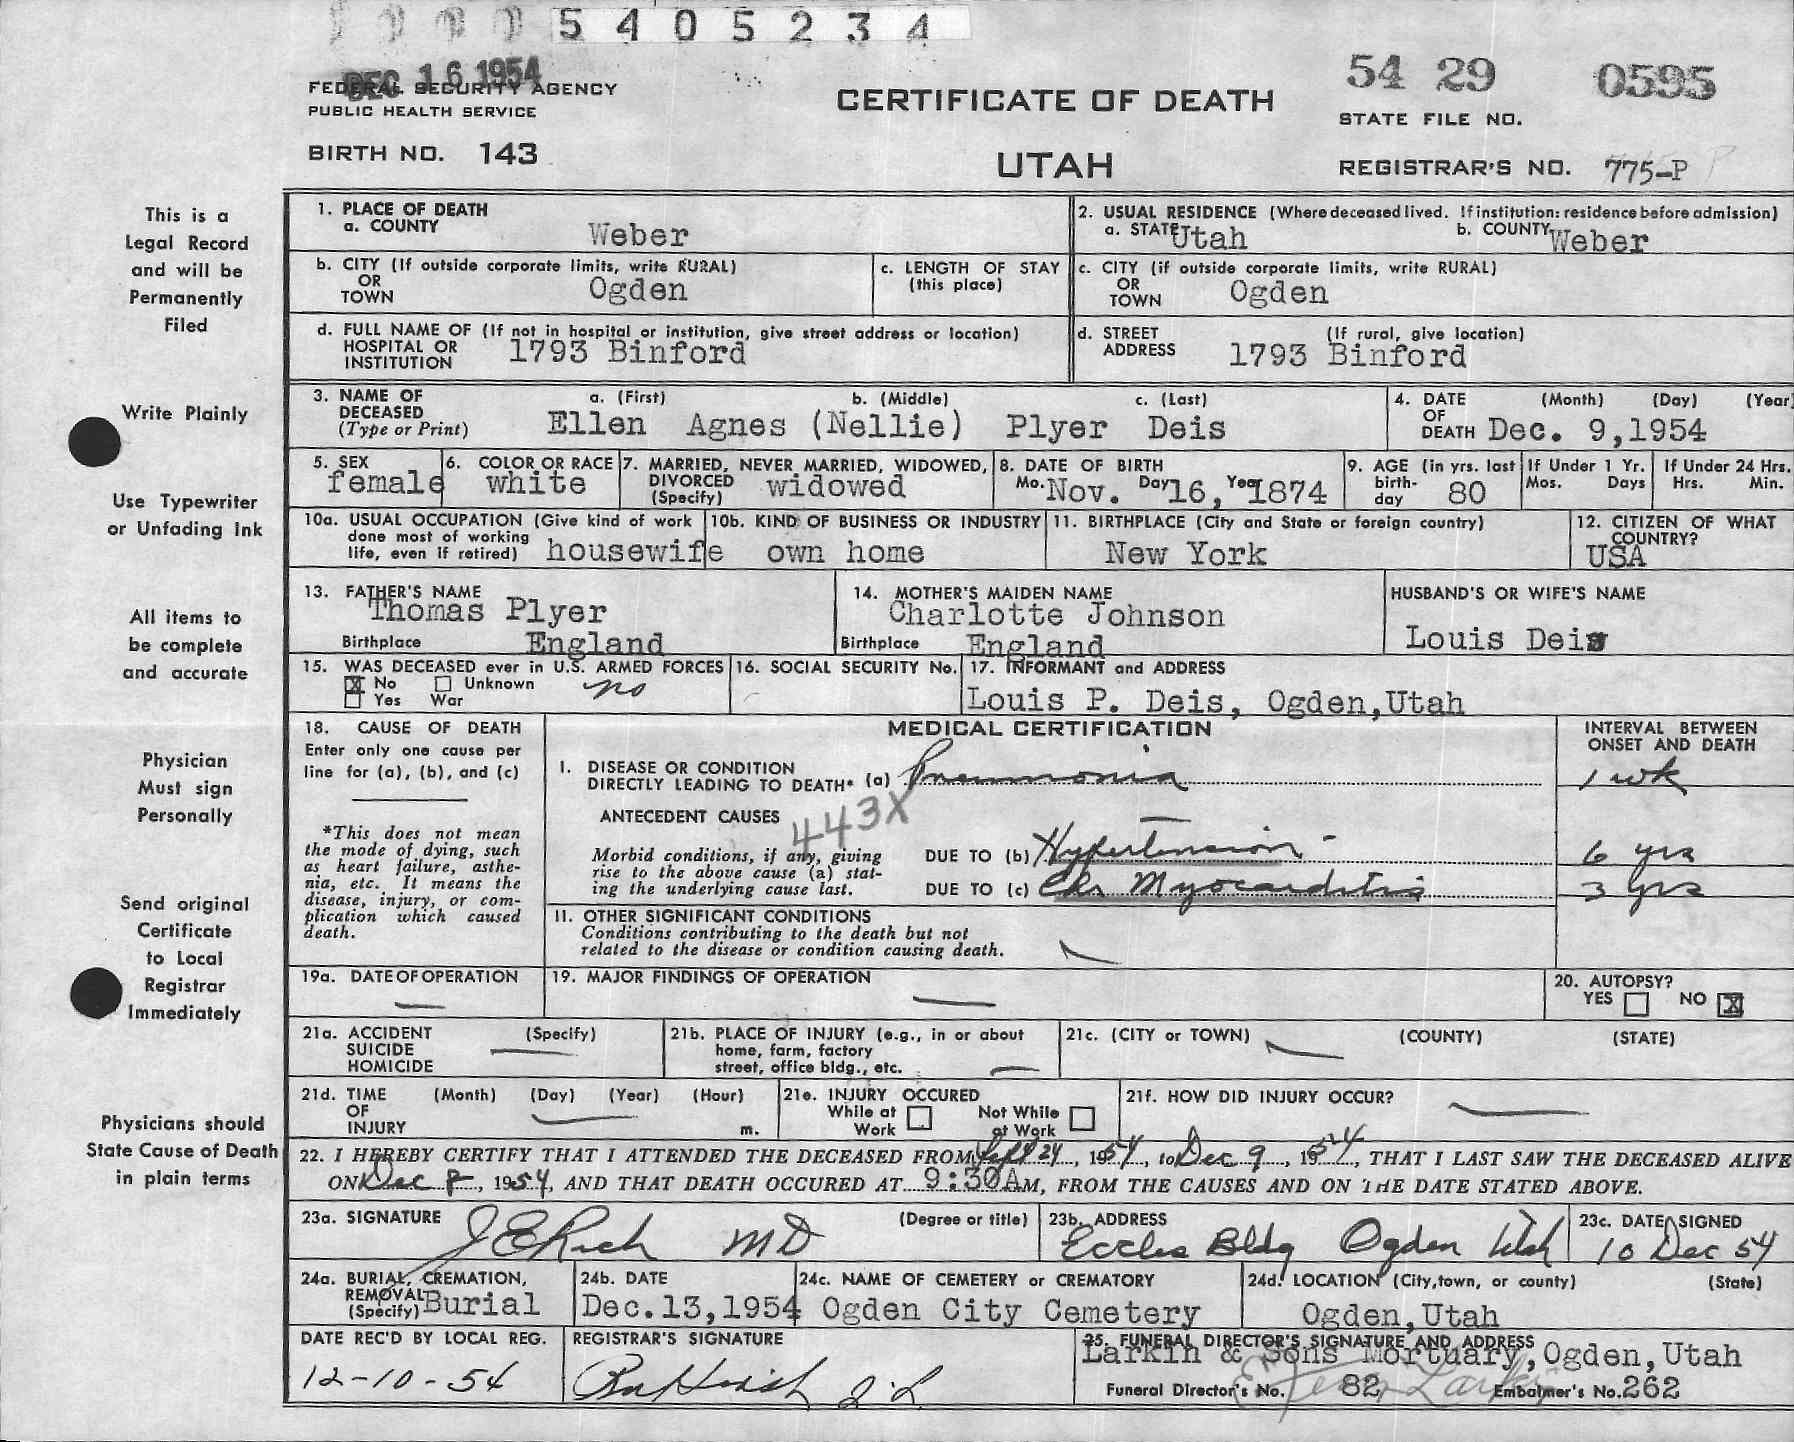 5405234
DEC 16 1954
54 29 0595
FEDERAL SECURITY AGENCY
PUBLIC HEALTH SERVICE
CERTIFICATE OF DEATH
STATE FILE NO.
BIRTH NO. 143
UTAH
REGISTRAR'S NO. 775-P
This is a
Legal Record
and will be
Permanently
Filed
Write Plainly
Use Typewriter
or Unfading Ink
All items to
be complete
and accurate
Physician
Must sign
Personally
Send original
Certificate
to Local
Registrar
Immediately
Physicians should
State Cause of Death
in plain terms
1. PLACE OF DEATH
a. COUNTY Weber
2. USUAL RESIDENCE (Where deceased lived. If institution: residence before admission)
a. STATE Utah b. COUNTY Weber
b. CITY (If outside corporate limits, write RURAL)
OR
TOWN Ogden
c. LENGTH OF STAY
(this place)
c. CITY (if outside corporate limits, write RURAL)
OR
TOWN Ogden
d. FULL NAME OF (If not in hospital or institution, give street address or location)
HOSPITAL OR
INSTITUTION 1793 Binford
d. STREET (If rural, give location)
ADDRESS 1793 Binford
3. NAME OF DECEASED (Type or Print) a. (First) b. (Middle) c. (Last)
Ellen Agnes (Nellie) Plyer Deis
4. DATE OF DEATH (Month) (Day) (Year)
Dec. 9,1954
5. SEX
female
6. COLOR OR RACE
white
7. MARRIED, NEVER MARRIED, WIDOWED,
DIVORCED
(Specify) widowed
8. DATE OF BIRTH
Mo. Nov. Day 16, Year 1874
9. AGE (in yrs. last
birth-
day 80
If Under 1 Yr.
Mos. Days
If Under 24 Hrs.
Hrs. Min.
10a. USUAL OCCUPATION (Give kind of work
done most of working
life, even if retired) housewife
10b. KIND OF BUSINESS OR INDUSTRY
own home
11. BIRTHPLACE (City and State or foreign country)
New York
12. CITIZEN OF WHAT
COUNTRY?
USA
13. FATHER'S NAME
Thomas Plyer
Birthplace England
14. MOTHER'S MAIDEN NAME
Charlotte Johnson
Birthplace England
HUSBAND'S OR WIFE'S NAME
Louis Deis
15. WAS DECEASED ever in U.S. ARMED FORCES
X No Unknown no
Yes War
16. SOCIAL SECURITY No.
17. INFORMANT and ADDRESS
Louis P. Deis, Ogden,Utah
18. CAUSE OF DEATH
Enter only one cause per
line for (a), (b), and (c)
*This does not mean
the mode of dying, such
as heart failure, asthe-
nia, etc. It means the
disease, injury, or com-
plication which caused
death.
MEDICAL CERTIFICATION
INTERVAL BETWEEN
ONSET AND DEATH
I. DISEASE OR CONDITION
DIRECTLY LEADING TO DEATH* (a) Pneumonia 1 wk
ANTECEDENT CAUSES 443X
Morbid conditions, if any, giving
rise to the above cause (a) stat-
ing the underlying cause last.
DUE TO (b) Hypertension 6 yrs
DUE TO (c) Chr Myocarditis 3 yrs
II. OTHER SIGNIFICANT CONDITIONS
Conditions contributing to the death but not
related to the disease or condition causing death.
19a. DATE OF OPERATION
19. MAJOR FINDINGS OF OPERATION
20. AUTOPSY?
YES NO X
21a. ACCIDENT (Specify)
SUICIDE
HOMICIDE
21b. PLACE OF INJURY (e.g., in or about
home, farm, factory
street, office bldg., etc.
21c. (CITY or TOWN) (COUNTY) (STATE)
21d. TIME (Month) (Day) (Year) (Hour)
OF
INJURY m.
21e. INJURY OCCURED
While at Work Not While at Work
21f. HOW DID INJURY OCCUR?
22. I HEREBY CERTIFY THAT I ATTENDED THE DECEASED FROM Sept 24, 1954, to Dec 9, 1954, THAT I LAST SAW THE DECEASED ALIVE
ON Dec 8, 1954, AND THAT DEATH OCCURED AT 9:30A M, FROM THE CAUSES AND ON THE DATE STATED ABOVE.
23a. SIGNATURE (Degree or title)
J E Rich MD
23b. ADDRESS
Eccles Bldg Ogden Utah
23c. DATE SIGNED
10 Dec 54
24a. BURIAL, CREMATION,
REMOVAL
(Specify) Burial
24b. DATE
Dec.13,1954
24c. NAME OF CEMETERY or CREMATORY
Ogden City Cemetery
24d. LOCATION (City,town, or county) (State)
Ogden,Utah
DATE REC'D BY LOCAL REG.
12-10-54
REGISTRAR'S SIGNATURE
25. FUNERAL DIRECTOR'S SIGNATURE AND ADDRESS
Larkin & Sons Mortuary,Ogden,Utah
Funeral Director's No. 82 Embalmer's No. 262